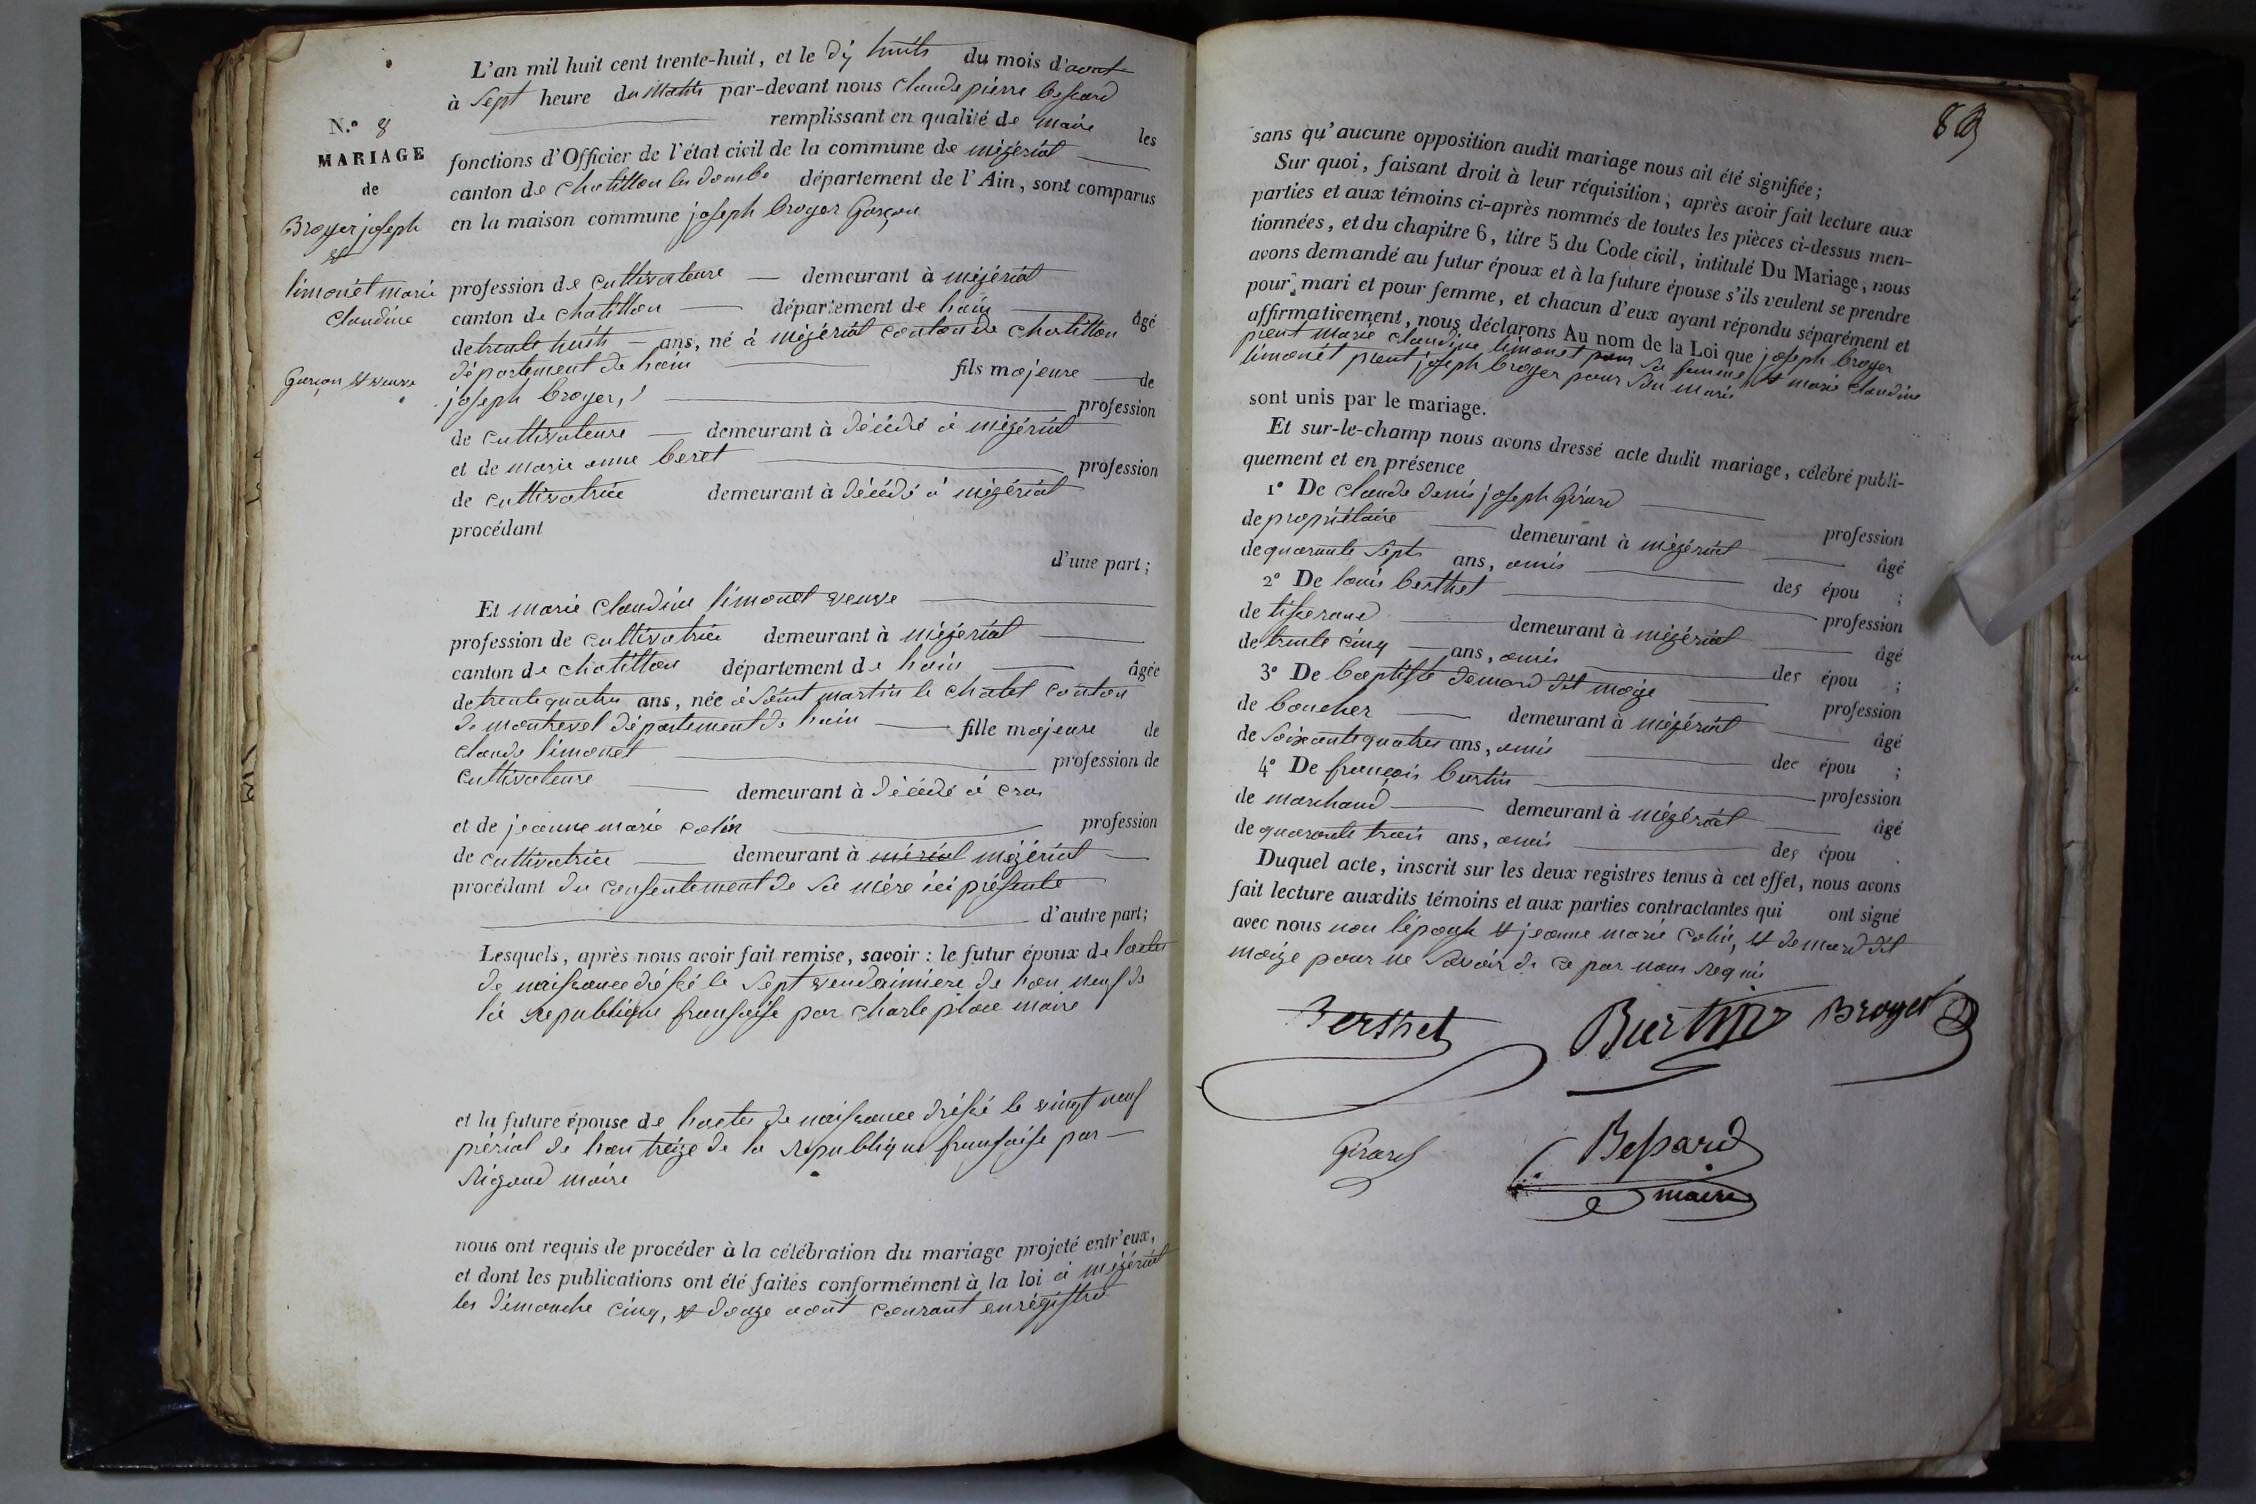 N.° 8
MARIAGE
de
Broyer joseph
et
limonet marie
claudine
Garçon et veuve
L'an mil huit cent trente-huit, et le dix huits du mois d'aout
à sept heure du matin par-devant nous claude pierre bessard
remplissant en qualité de maire les
fonctions d'Officier de l'état civil de la commune de mézériat
canton de chatillon les dombe département de l'Ain, sont comparus
en la maison commune joseph broyer Garçon
profession de cultivateure demeurant à mézériat
canton de chatillon département de hain âgé
de trente huits ans, né à mézériat canton de chatillon
département de hain fils majeure de
joseph broyer, profession
de cultivateure demeurant à décédé à mézériat
et de marie anne beret profession
de cultivatrice demeurant à décédé à mézériat
procédant
d'une part;
Et marie claudine limonet veuve
profession de cultivatrice demeurant à mézériat
canton de chatillon département de hain âgée
de trente quatre ans, née à saint martin le chatel canton
de montrevel département de hain fille majeure de
claude limonet profession de
cultivateure demeurant à décédé à cras
et de jeanne marie colin profession
de cultivatrice demeurant à mériat mézériat
procédant du consentement de sa mère ici présente
d'autre part;
Lesquels, après nous avoir fait remise, savoir: le futur époux de lactes
de naissance dréssé le sept vendaimiere de han neuf de
la republique fransaise par charle place maire
et la future épouse de hactes de naissance dréssé le vingt neuf
prérial de han treize de la republique fransaise par
rigaud maire
nous ont requis de procéder à la célébration du mariage projeté entr'eux,
et dont les publications ont été faites conformément à la loi à mézériat
les dimanche cinq, et douze aout courant enrégistré
89
sans qu'aucune opposition audit mariage nous ait été signifiée;
Sur quoi, faisant droit à leur réquisition, après avoir fait lecture aux
parties et aux témoins ci-après nommés de toutes les pièces ci-dessus men-
tionnées, et du chapitre 6, titre 5 du Code civil, intitulé Du Mariage, nous
avons demandé au futur époux et à la future épouse s'ils veulent se prendre
pour mari et pour femme, et chacun d'eux ayant répondu séparément et
affirmativement, nous déclarons Au nom de la Loi que joseph broyer
prent marie claudine limonet pour sa femme, et marie claudine
limonet prent joseph broyer pour son marie
sont unis par le mariage.
Et sur-le-champ nous avons dressé acte dudit mariage, célébré publi-
quement et en présence
1° De claude denis joseph Girard profession
de propriétaire demeurant à mézériat âgé
de quarante septs ans, amis des épou ;
2° De louis berthet profession
de tisserand demeurant à mézériat âgé
de trente cinq ans, amis des épou ;
3° De baptiste demard dit moize profession
de boucher demeurant à mézériat âgé
de soixante quatres ans, amis des épou ;
4° De françois burtin profession
de marchand demeurant à mézériat âgé
de quarante trois ans, amis des épou .
Duquel acte, inscrit sur les deux registres tenus à cet effet, nous avons
fait lecture auxdits témoins et aux parties contractantes qui ont signé
avec nous non lépouse et jeanne marie colin, et demard dit
moize pour ne savoir de ce par nous requis
Berthet Burtin Broyer
Girard Bessard
maire